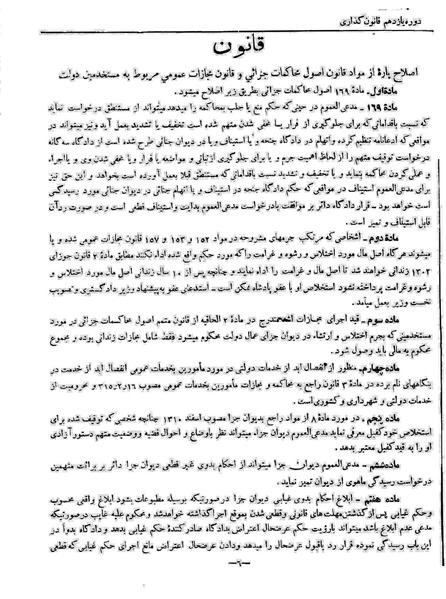 دوره یازدهم قانون گذاری
قانون
اصلاح پارهٔ از مواد قانون اصول محاکمات جزائی و قانون مجازات عمومی مربوط به مستخدمین دولت
مادهٔ اول ـ مادهٔ ۱۶۹ اصول محاکمات جزائی بطریق زیر اصلاح میشود.
مادهٔ ۱۶۹ ـ مدعی‌العموم در حینی که حکم منع یا جلب بمحاکمه را میدهد میتواند از مستنطق درخواست نماید
که نسبت باقداماتی که برای جلوگیری از فرار یا مخفی شدن متهم شده است تخفیف یا تشدید بعمل آید و نیز میتواند در
مواقعی که ادعانامه تنظیم کرده و اتهام در دادگاه جنحه و یا استیناف و یا در دیوان جنائی طرح شده است از دادگاه سه گانه
درخواست توقیف متهم را از لحاظ اهمیت جرم و یا برای جلوگیری از تبانی و مواضعه یا فرار و یا مخفی شدن وی و یا اجراء
و عملی کردن محاکمه بنماید و یا تخفیف و تشدید نسبت باقداماتی که توسط مستنطق قبلا بعمل آورده است بخواهد و این حق نیز
برای مدعی‌العموم استیناف در مواقعی که حکم دادگاه جنحه در استیناف و یا اتهام جنائی در دیوان جنائی مورد رسیدگی
است خواهد بود ـ قرار دادگاه دائر بر موافقت با درخواست مدعی‌العموم بدایت و استیناف قطعی است و در صورت رد آن
قابل استیناف و تمیز است .
مادهٔ دوم ـ اشخاصی که مرتکب جرمهای مشروحه در مواد ۱۵۲ و ۱۵۳ و ۱۵۷ قانون مجازات عمومی شده و یا
میشوند هرگاه اصل مال مورد اختلاس و رشوه و غرامت را که مورد حکم واقع شده ادا نکنند مطابق مادهٔ ۲ قانون جزای
۱۳۰۲ زندانی خواهند شد تا اصل مال و غرامت را اداه نمایند و چنانچه پس از ۱۰ سال زندانی اصل مال مورد اختلاس و
رشوه و غرامت پرداخته نشود استخلاص او با عفو پادشاه ممکن است ـ استدعای عفو به پیشنهاد وزیر دادگستری و تصویب
نخست وزیر بعمل میآمد.
ماده سوم ـ قید اجرای مجازات اشد مندرج در مادهٔ ۲ الحاقیه از قانون متمم اصول محاکمات جزائی در مورد
مستخدمینی که بجرم اختلاس و ارتشاء در دیوان جزای عمال دولت محکوم میشود فقط شامل مجازات زندانی بوده و مجموع
محکوم به مالی باید وصول شود.
ماده چهارم ـ منظور از انفصال ابد از خدمات دولتی در مورد مأمورین بخدمات عمومی انفصال ابد از خدمت در
بنگاههای نام برده در مادهٔ ۳ قانون راجع به محاکمه و مجازات مأمورین بخدمات عمومی مصوب ۱۶ر۲ر۳۱۵ و محرومیت از
خدمات دولتی و شهرداری و کشوری است.
ماده پنجم ـ در مورد مادهٔ ۸ از مواد راجع بدیوان جزا مصوب اسفند ۱۳۱۰ چنانچه شخصی که توقیف شده برای
استخلاص خود کفیل معرفی نماید مدعی‌العموم دیوان جزا میتواند نظر باوضاع و احوال قضیه و وضعیت متهم دستور آزادی
او را به قید کفیل معتبر بدهد.
ماده ششم ـ مدعی‌العموم دیوان جزا میتواند از احکام بدوی غیر قطعی دیوان جزا دائر بر برائت متهمین
درخواست رسیدگی ماهوی از دیوان تمیز نماید.
ماده هفتم ـ ابلاغ احکام بدوی غیابی دیوان جزا در صورتیکه بوسیله مطبوعات بشود ابلاغ واقعی محسوب
و حکم غیابی پس از گذشتن مهلت‌های قانونی و قطعی شدن بموقع اجرا گذاشته خواهد شد و محکوم علیه غایب در صورتیکه
مدعی عدم ابلاغ باشد میتواند با رؤیت حکم عرضحال اعتراض بدادگاه صادرکنندهٔ حکم غیابی بدهد و دادگاه بدواً در
این باب رسیدگی نموده قرار رد یا قبول عرضحال را میدهد و دادن عرضحال اعتراض مانع اجرای حکم غیابی که قطعی
ـ۶ـ